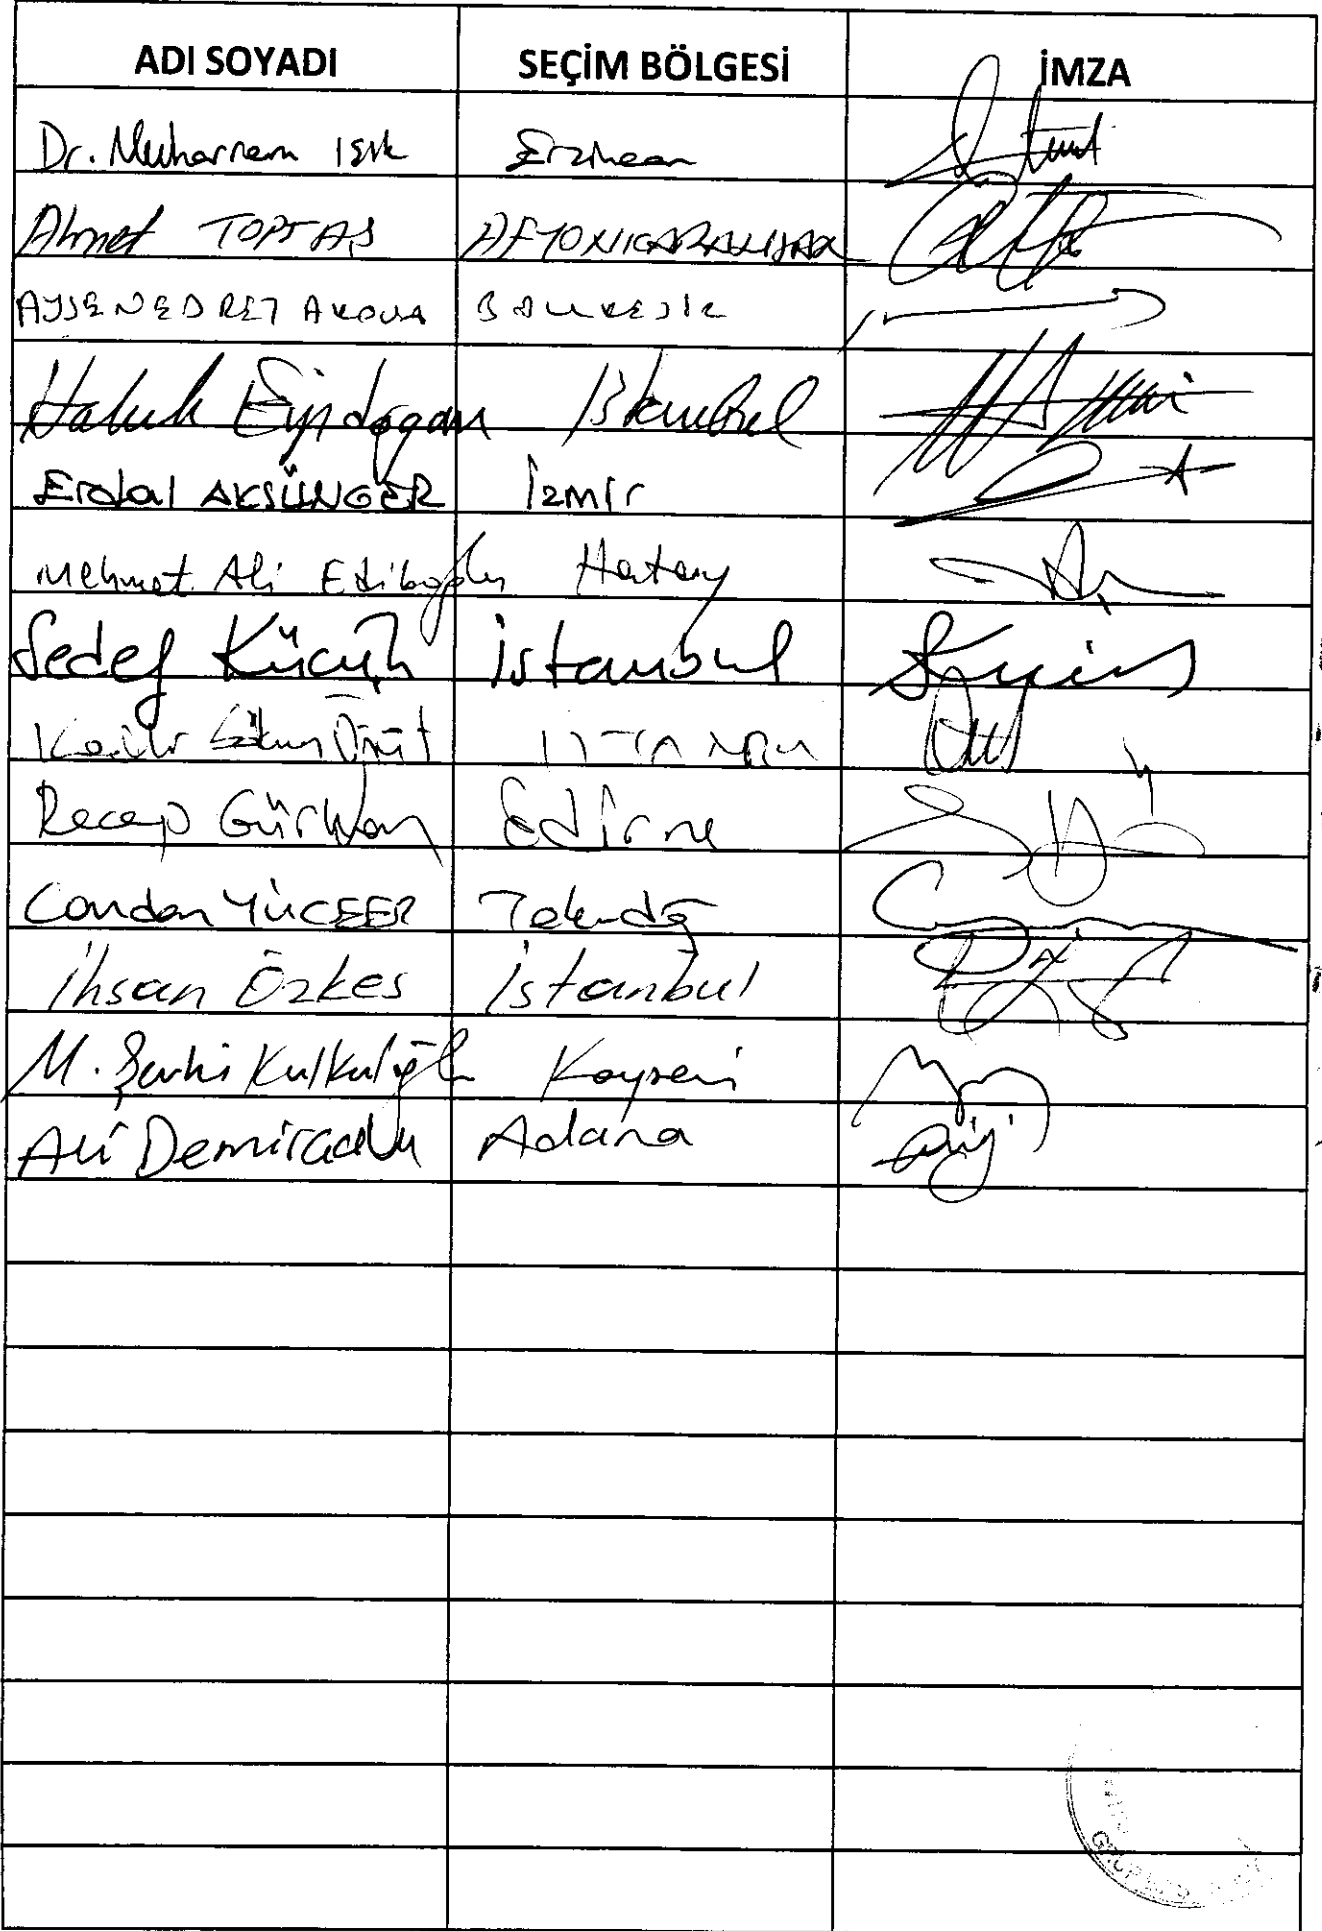 ADI SOYADI SEÇİM BÖLGESİ İMZA
Dr. Muharrem Işık Erzincan
Ahmet TOPTAŞ AFYONKARAHİSAR
AYŞE NEDRET AKOVA BALIKESİR
Haluk Eyidoğan İstanbul
Erdal AKSÜNGER İzmir
Mehmet Ali Ediboğlu Hatay
Sedef Küçük İstanbul
Kadir Gökmen Öğüt İSTANBUL
Recep Gürkan Edirne
Candan YÜCEER Tekirdağ
İhsan Özkes İstanbul
M. Şevki Kulkuloğlu Kayseri
Ali Demirçalı Adana